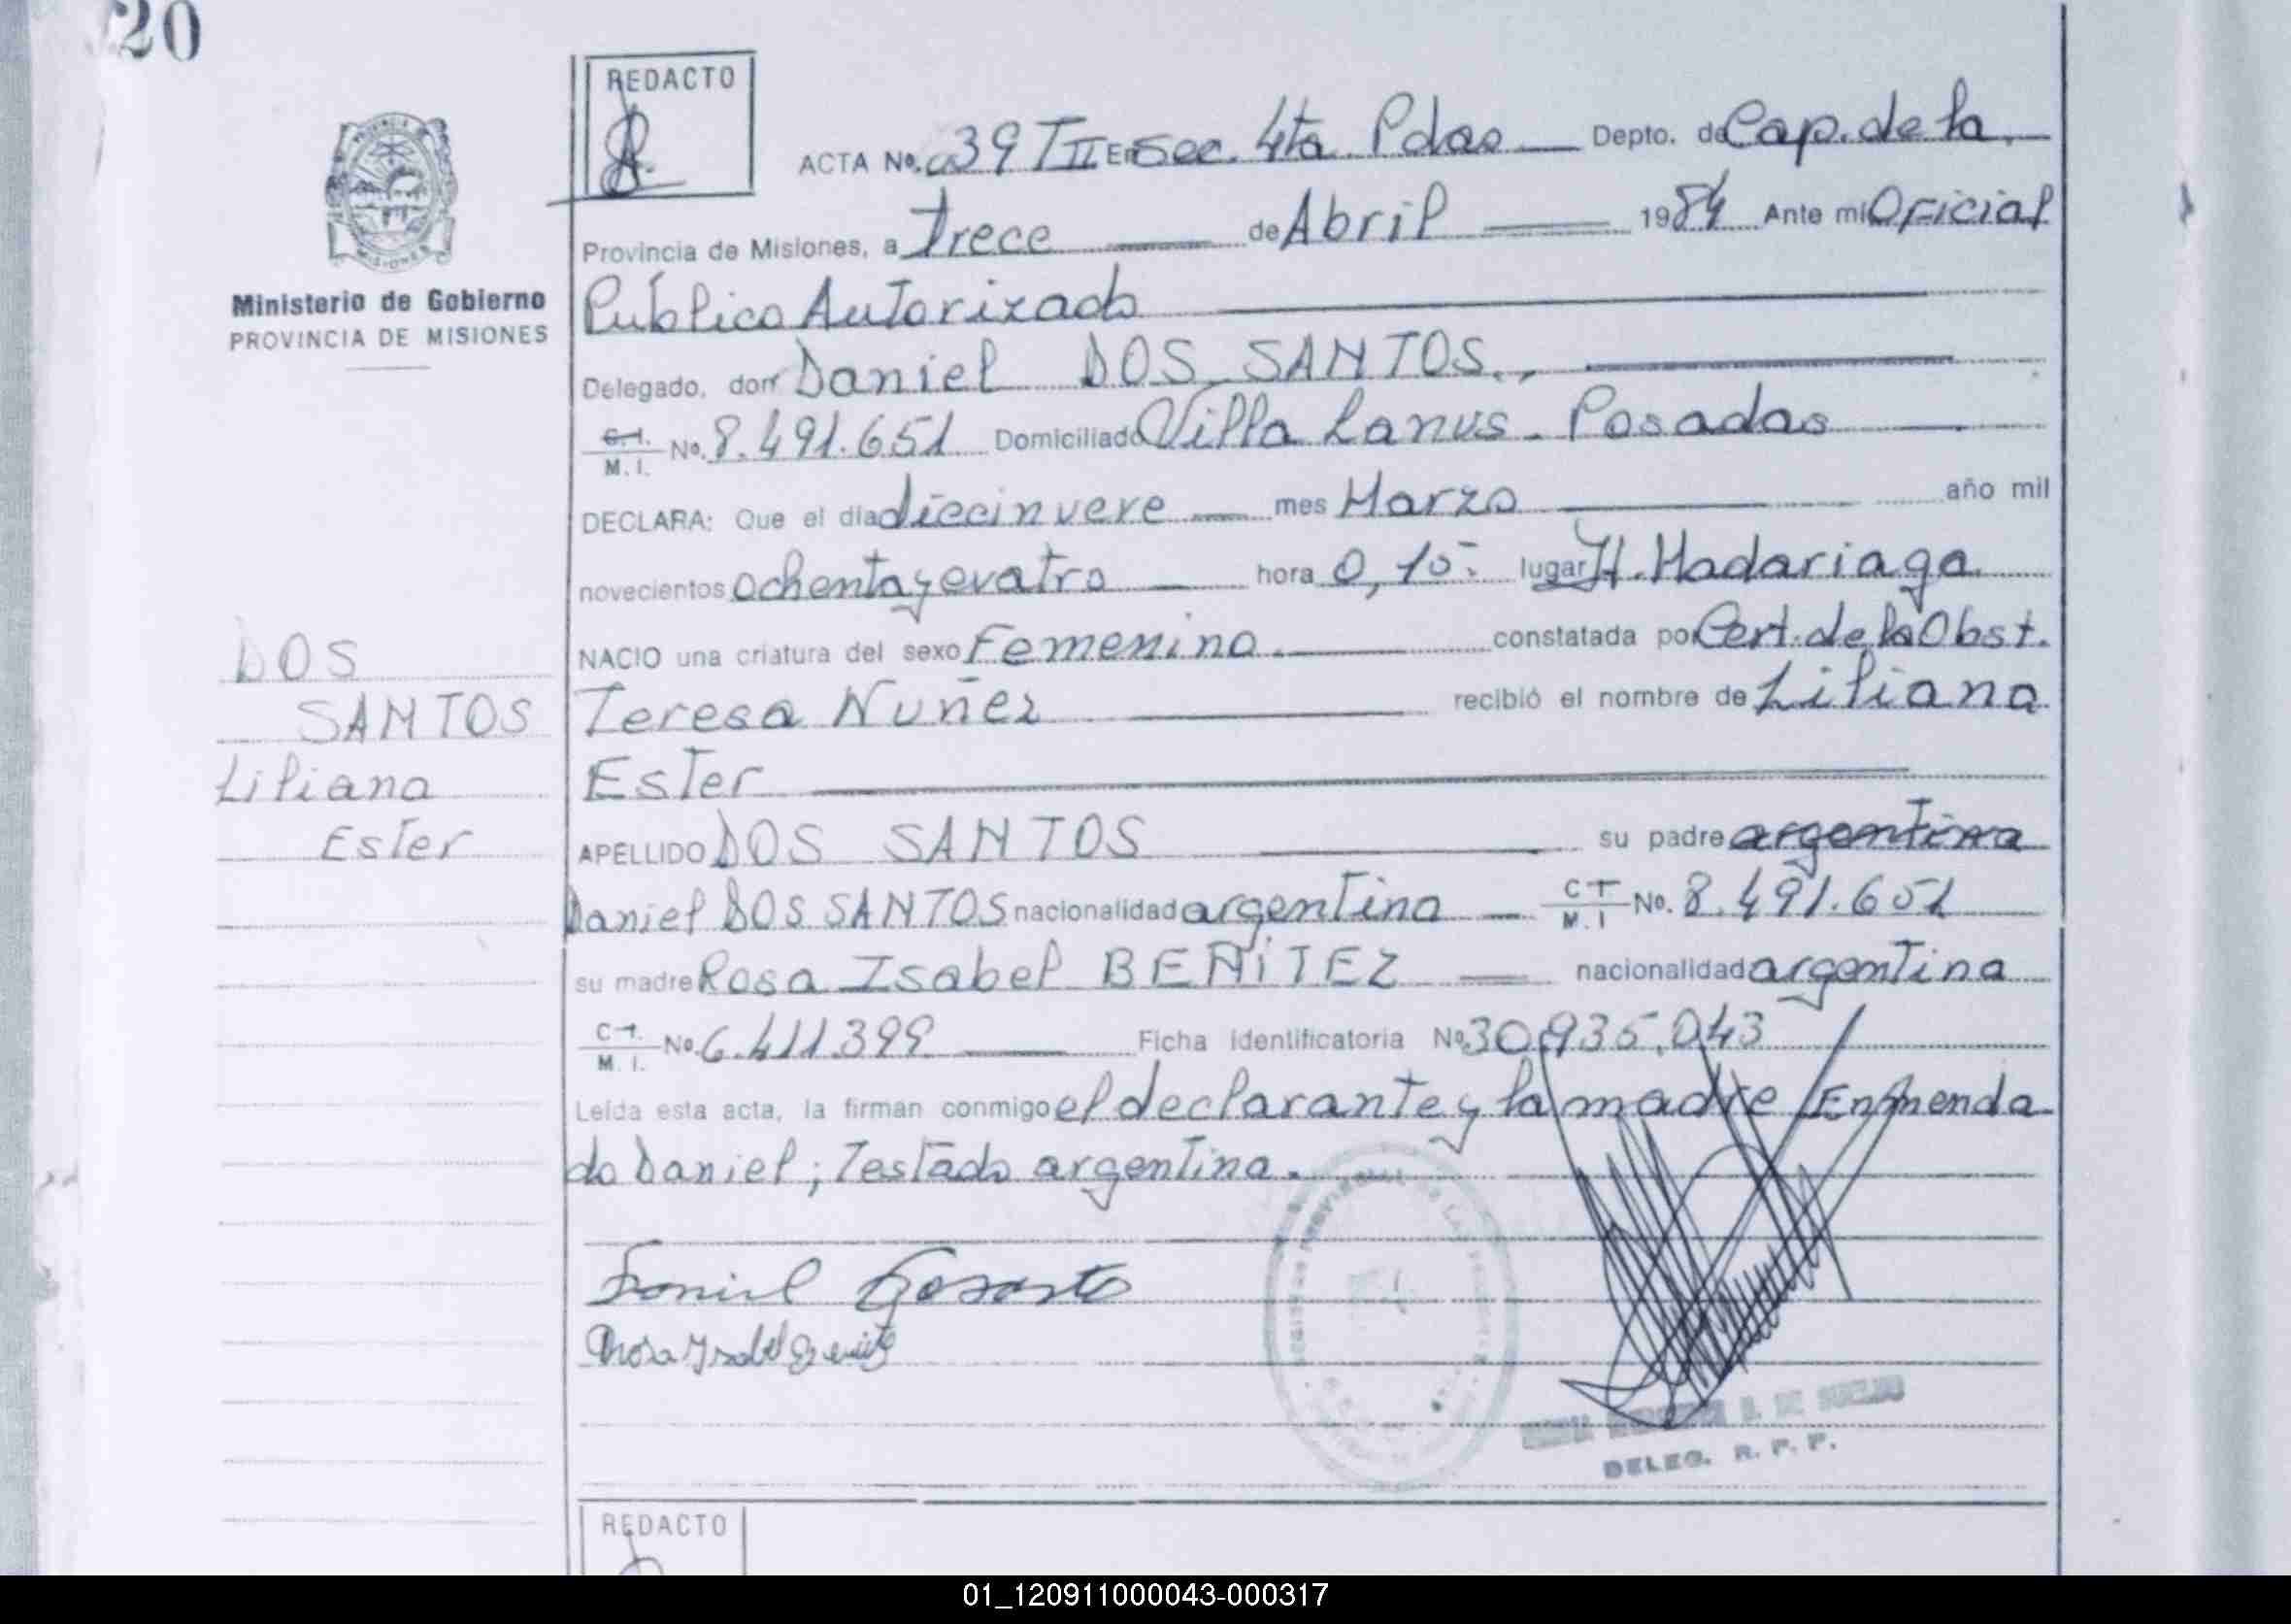 20
REDACTO
ACTA No. 39 T II En Sec. 4ta Pdas Depto. de Cap. de la
Provincia de Misiones, a Trece de Abril 1984 Ante mi Oficial
Ministerio de Gobierno
PROVINCIA DE MISIONES
Público Autorizado
Delegado, don Daniel DOS SANTOS.,
C.I. M.I. No. 8.491.651 Domiciliado Villa Lanus - Posadas
DECLARA: Que el día diecinueve mes Marzo año mil
novecientos ochenta y cuatro hora 0,10- lugar H. Madariaga
NACIO una criatura del sexo Femenino. constatada por Cert. de la Obst.
Teresa Nuñez recibió el nombre de Liliana
Ester
APELLIDO DOS SANTOS su padre argentina
Daniel DOS SANTOS nacionalidad argentina C I M. I No. 8.491.651
su madre Rosa Isabel BENITEZ nacionalidad argentina
C I. M. I. No. 6.411.399 Ficha identificatoria No. 30.935.043
Leída esta acta, la firman conmigo el declarante y la madre Enmenda
do Daniel; Testado argentina.
DOS
SANTOS
Liliana
Ester
Rosa Ysabel Benitez
DELEG. R. P. P.
REDACTO
01_120911000043-000317